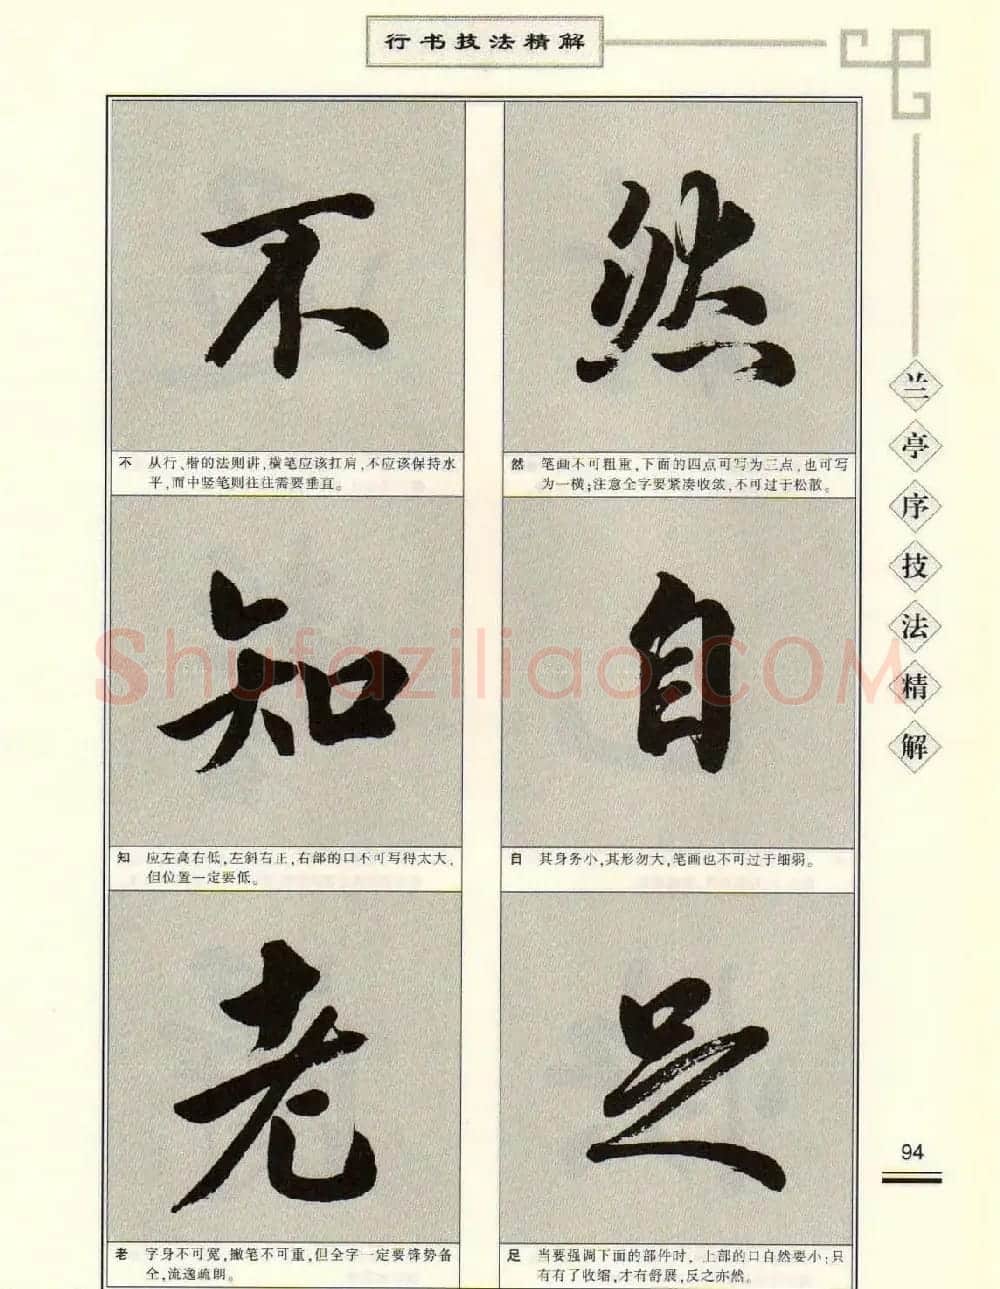 行书技法精解
然
然 笔画不可粗重,下面的四点可写为三点,也可写
为一横;注意全字要紧凑收敛,不可过于松散。
自
自 其身务小,其形勿大,笔画也不可过于细弱。
足
足 当要强调下面的部件时,上部的口自然要小;只
有有了收缩,才有舒展,反之亦然。
不
不 从行、楷的法则讲,横笔应该扛肩,不应该保持水
平,而中竖笔则往往需要垂直。
知
知 应左高右低,左斜右正,右部的口不可写得太大,
但位置一定要低。
老
老 字身不可宽,撇笔不可重,但全字一定要锋势备
全,流逸疏朗。
兰亭序技法精解
94
Shufaziliao.COM